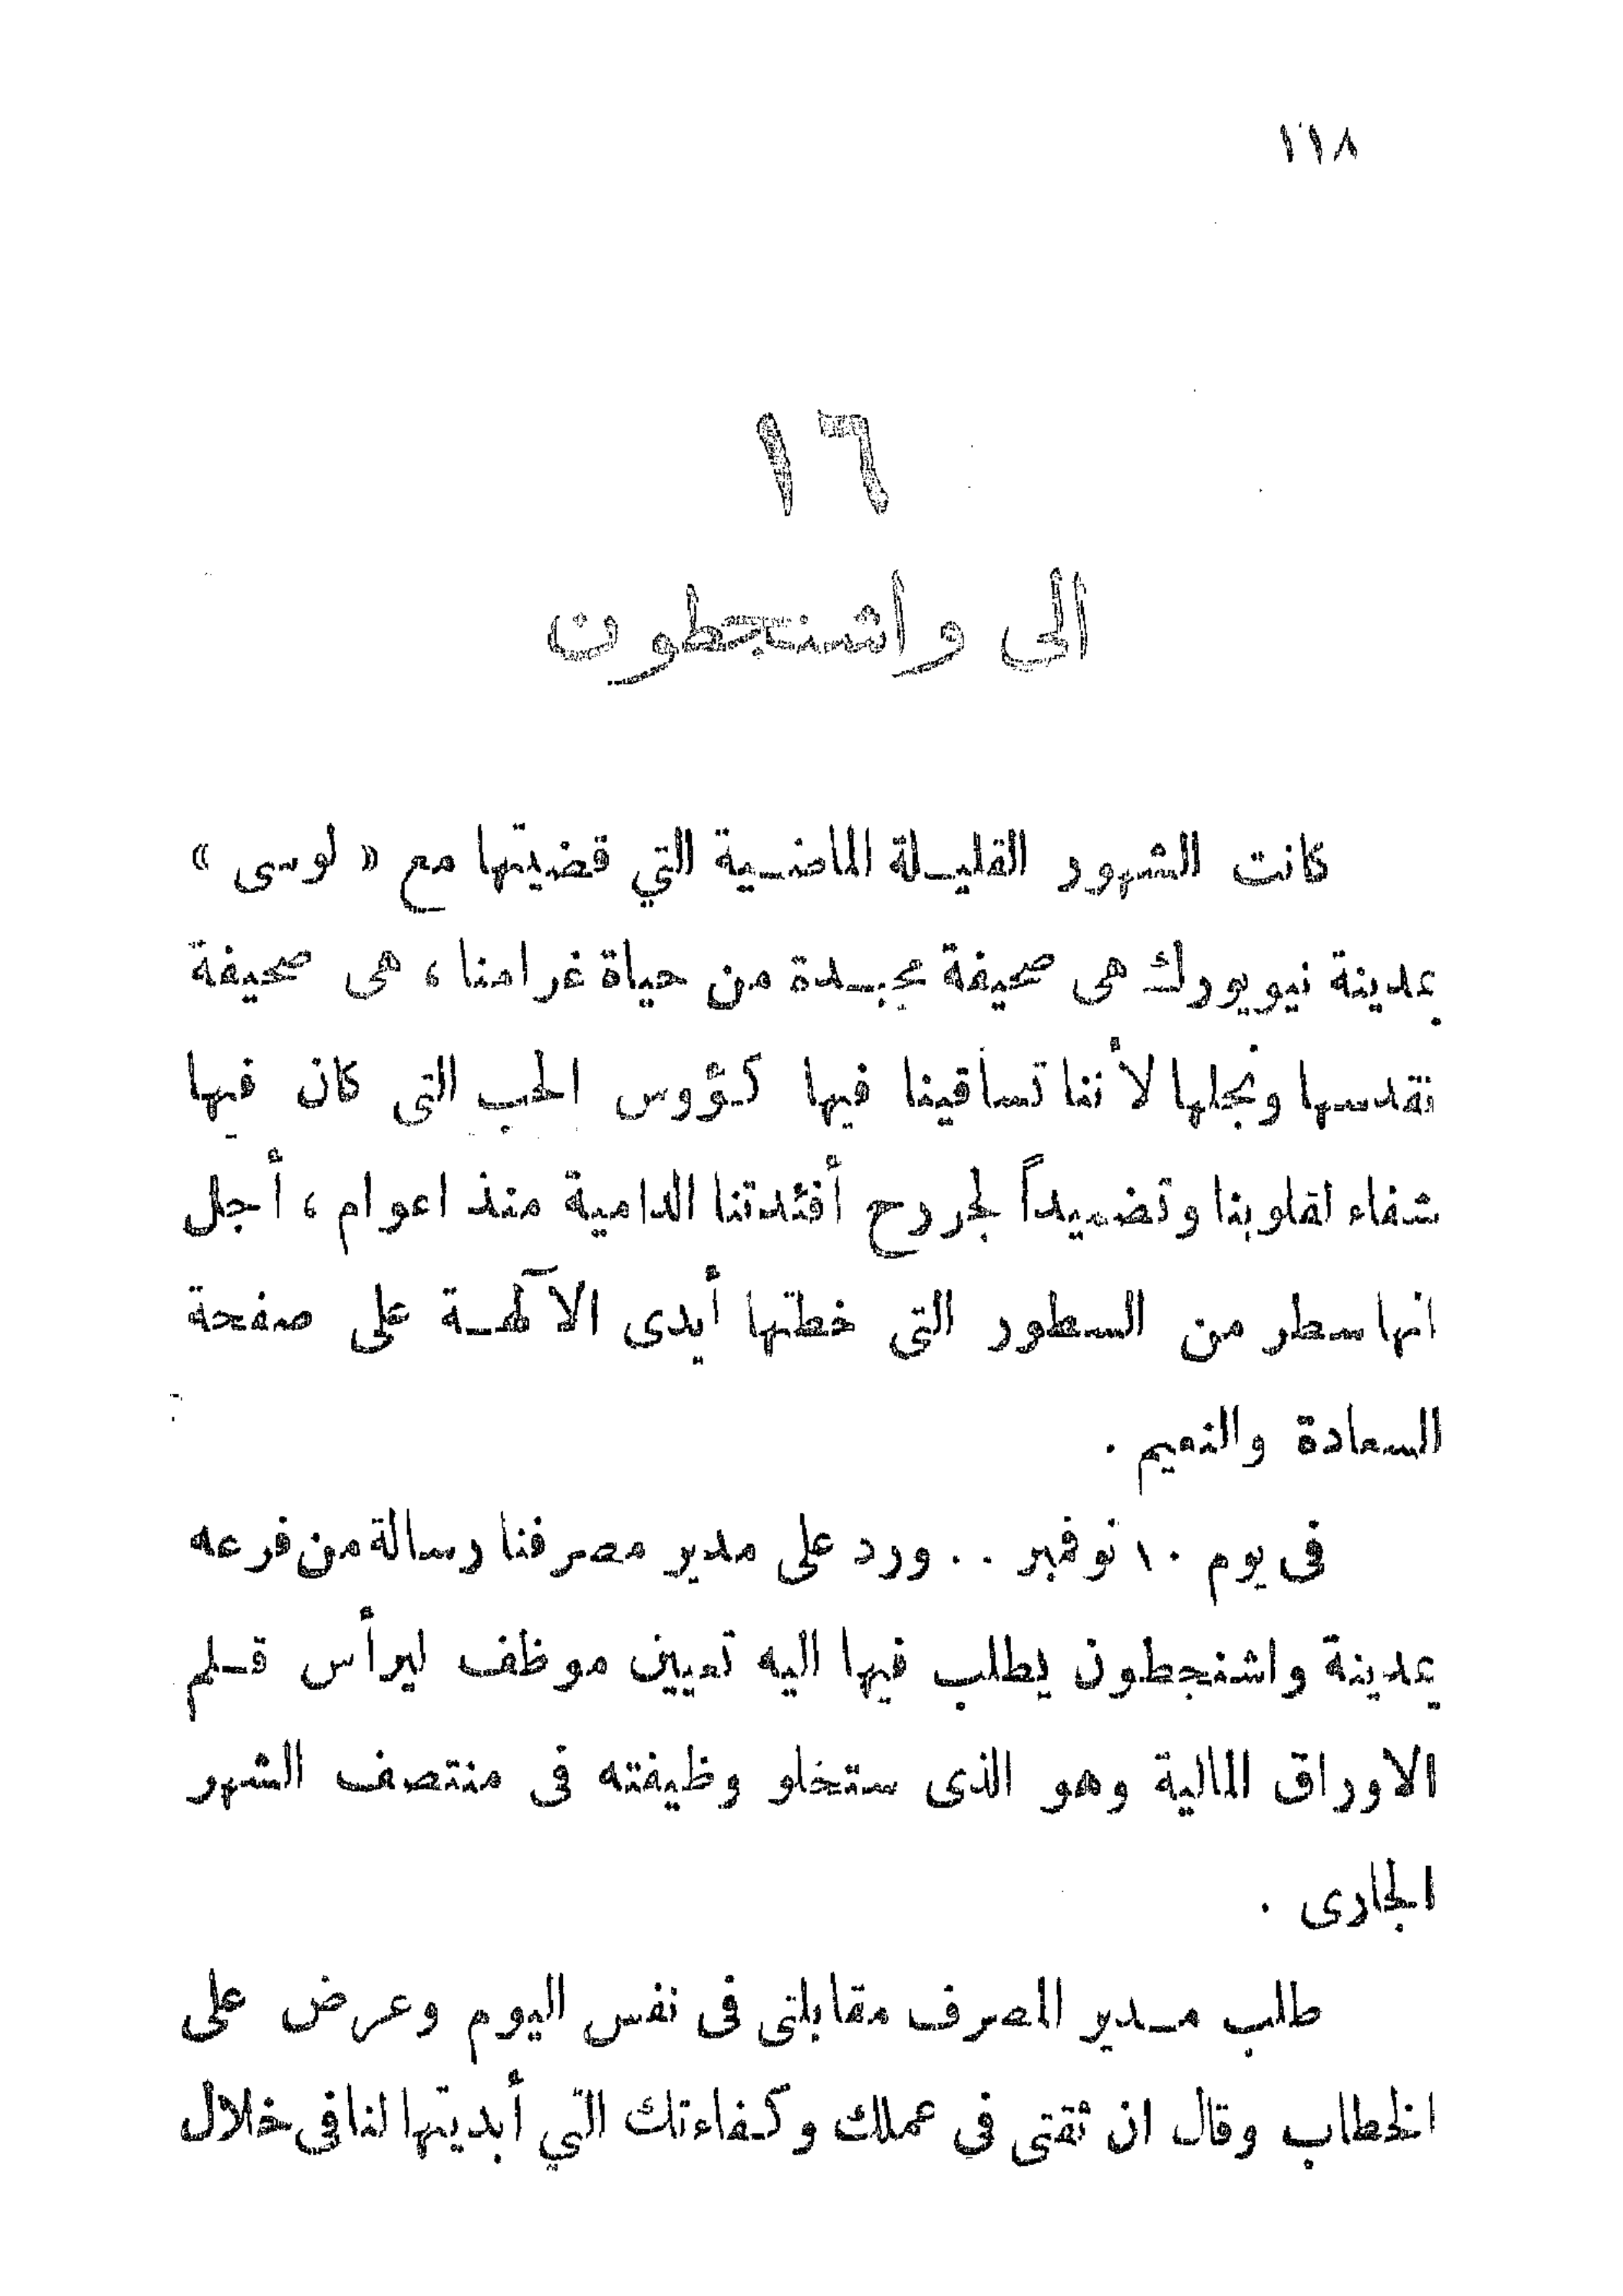 ١١٨
١٦
الى واشنجطون
كانت الشهور القليلة الماضية التي قضيتها مع « لوسى »
بمدينة نيويورك هى صحيفة مجيدة من حياة غرامنا ، هى صحيفة
نقدسها ونجلها لأننا تساقينا فيها كؤوس الحب التى كان فيها
شفاء لقلوبنا وتضميداً لجروح أفئدتنا الدامية منذ اعوام ، أجل
انها سطر من السطور التى خطتها أيدى الآلهة على صفحة
السعادة والنعيم .
فى يوم ١٠ نوفمبر . . ورد على مدير مصرفنا رسالة من فرعه
بمدينة واشنجطون يطلب فيها اليه تعيين موظف ليرأس قلم
الاوراق المالية وهو الذى ستخلو وظيفته فى منتصف الشهر
الجارى .
طلب مدير المصرف مقابلتى فى نفس اليوم وعرض على
الخطاب وقال ان ثقتى فى عملك وكفاءتك التي أبديتها لنا فى خلال